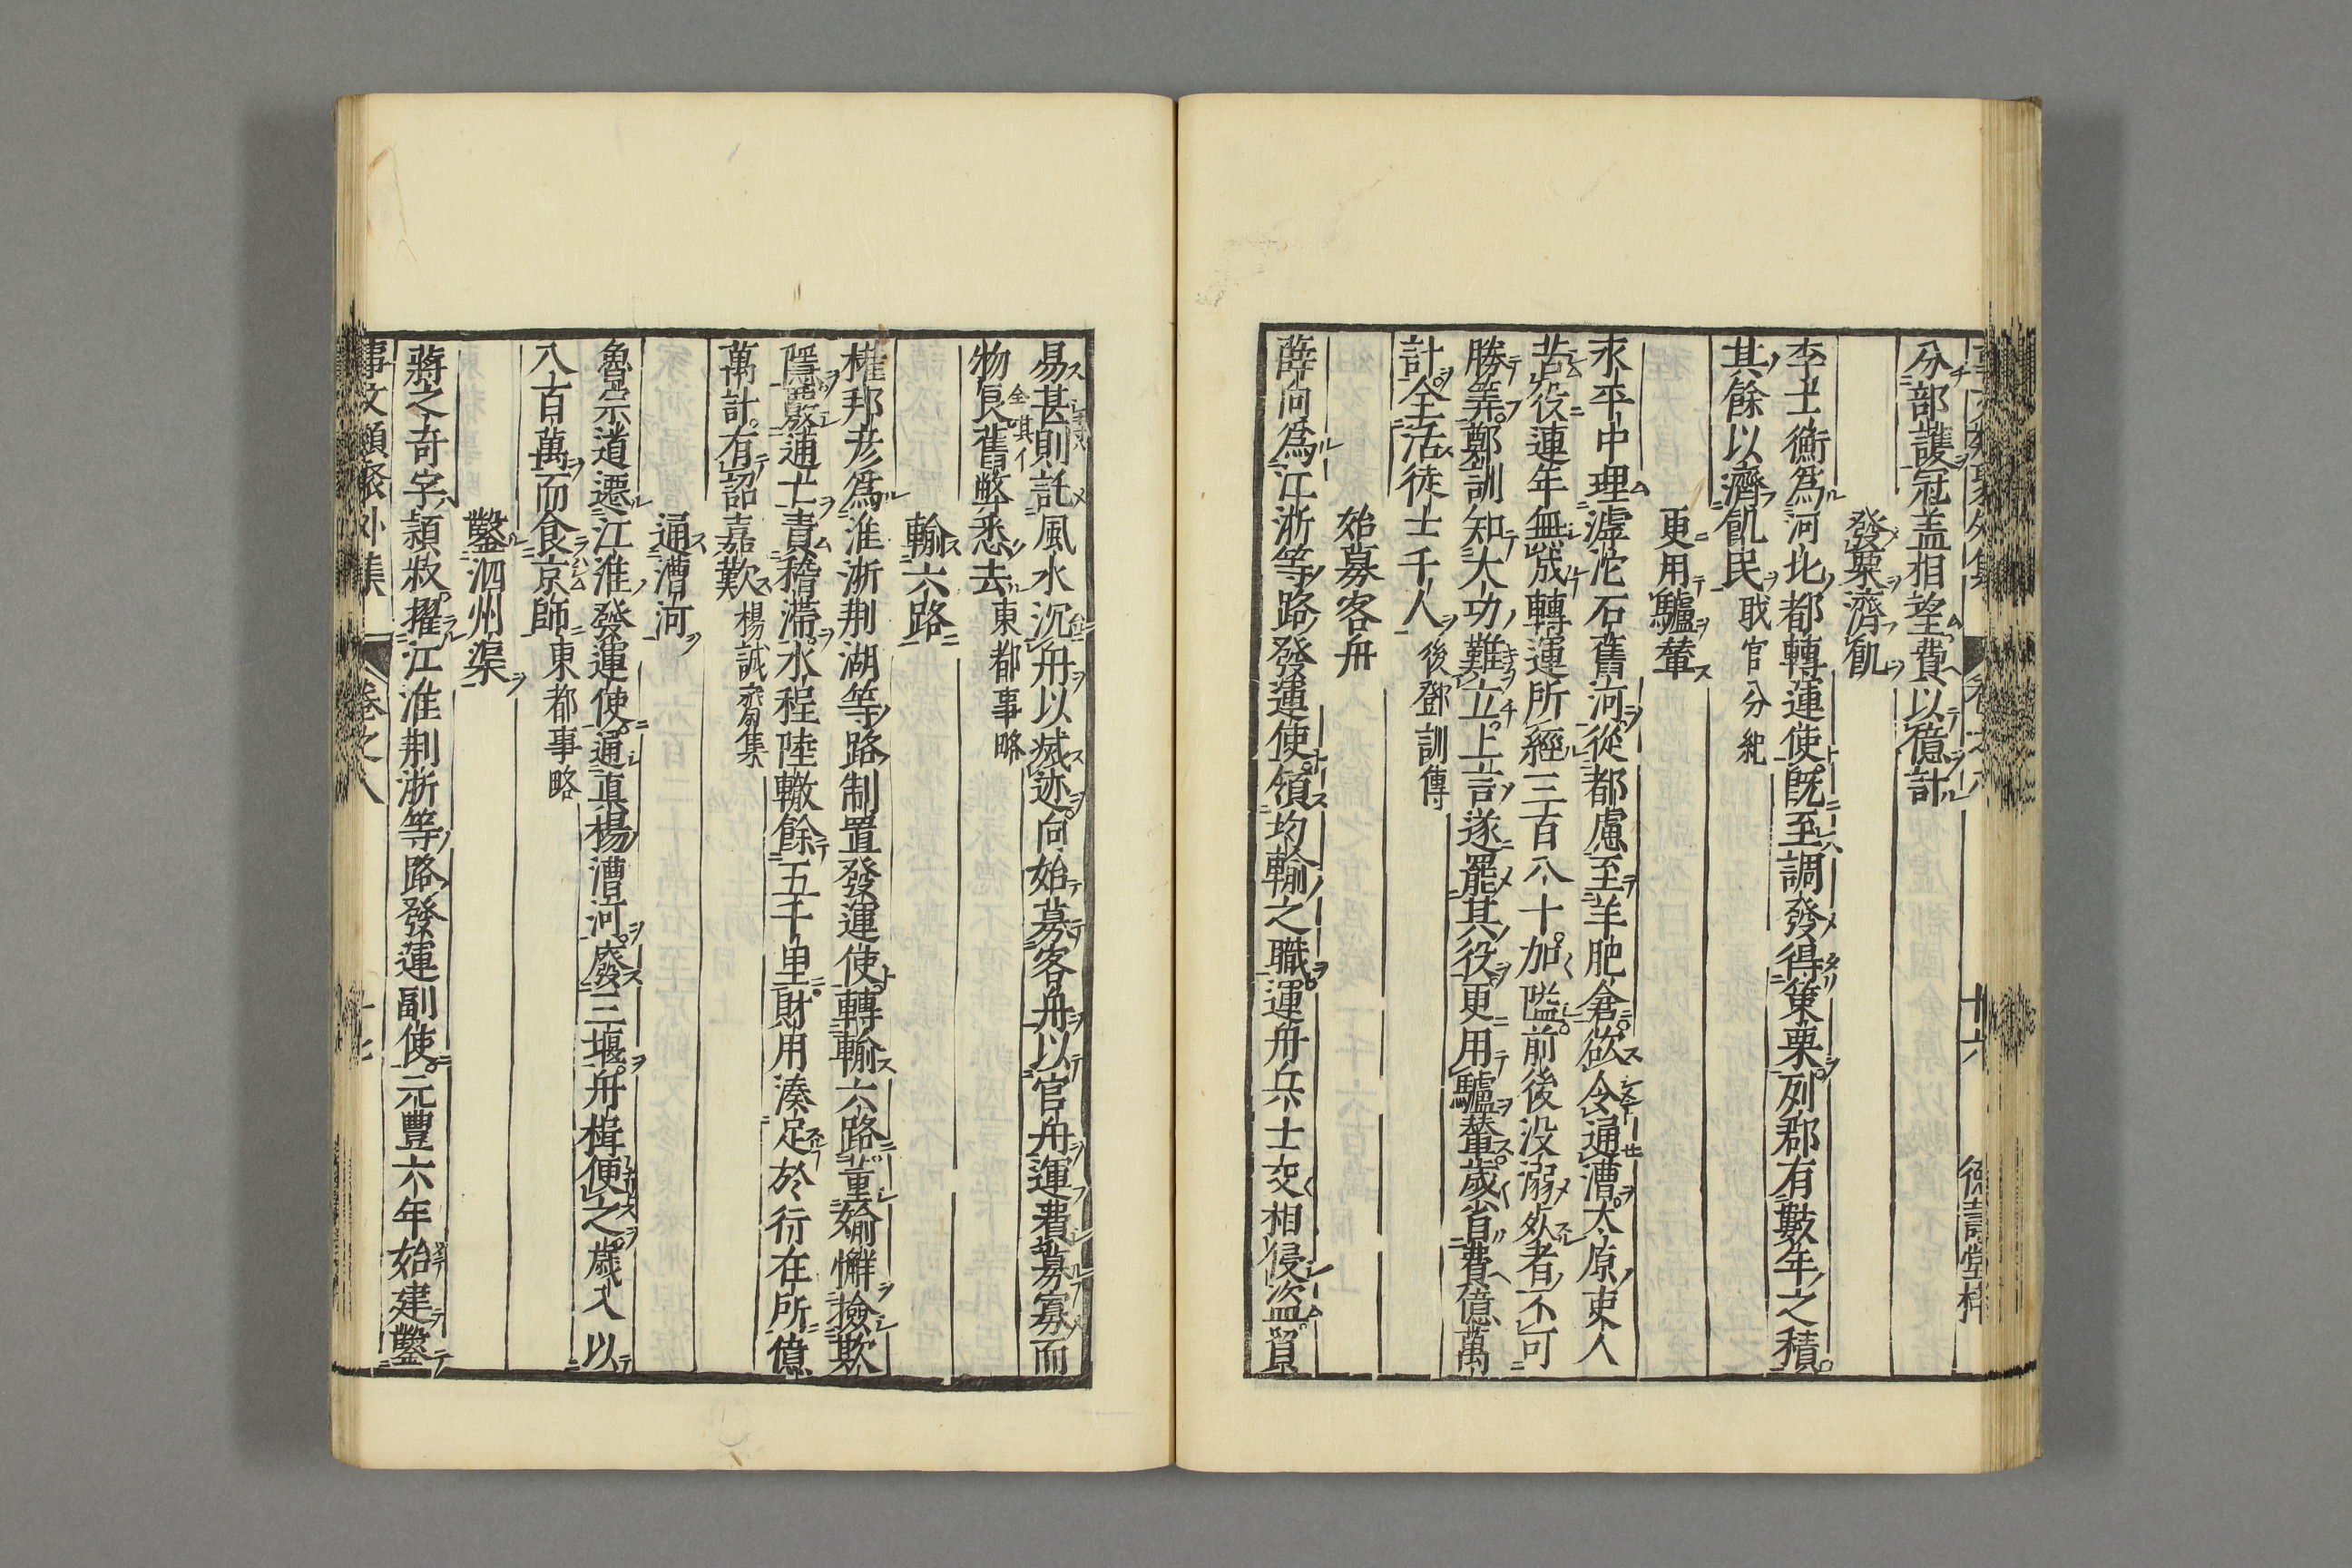 分部護冠盖相望費以億計
發粟濟飢
李士衡爲河北都轉運使既至調發得策粟列郡有數年之積
其餘以濟飢民 職官分紀
更用驢輦
永平中理滹沱石舊河從都慮至羊肥倉欲令通漕太原吏人
苦役連年無成轉運所經三百八十加隘前後没溺死者不可
勝筭鄭訓知大功難立上言遂罷其役更用驢輦歲省費億萬
計全活徒士千人 後鄧訓傳
始募客舟
薛向爲江浙等路發運使領均輸之職運舟兵士交相侵盜貿
易甚則託風水沉舟以滅迹向始募客舟以官舟運費募寡而
物良舊弊悉去 東都事略
輸六路
權邦彦爲淮浙荆湖等路制置發運使轉輸六路董媮懈撿欺
隱覈逋亡責稽滯水程陸轍餘五千里財用湊足於行在所億
萬計有詔嘉歎 楊誠齋集
通漕河
魯宗道遷江淮發運使通真楊漕河廢三堰舟楫便之歲入以
八百萬而食京師 東都事略
鑿泗州渠
蔣之奇字頴叔擢江淮荆浙等路發運副使元豐六年始建鑿
事文類聚外集 卷之八 十七